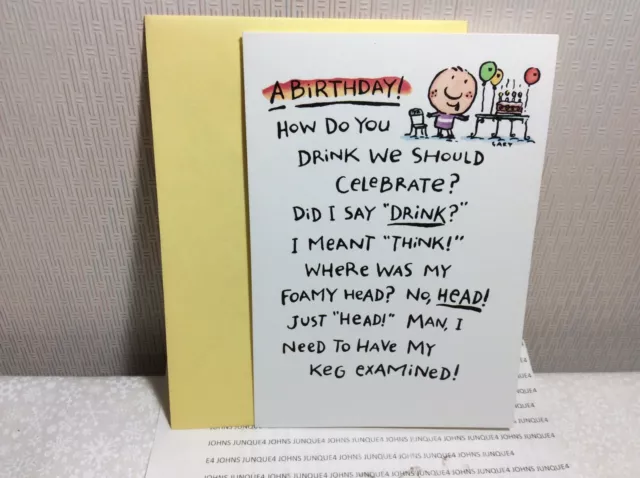 A BIRTHDAY!
HOW DO YOU
DRINK WE SHOULD
CELEBRATE?
DID I SAY "DRINK?"
I MEANT "THINK!"
WHERE WAS MY
FOAMY HEAD? NO, HEAD!
JUST "HEAD!" MAN, I
NEED TO HAVE MY
KEG EXAMINED!
GARY
JOHNS JUNQUE4 JOHNS JUNQUE4 JOHNS JUNQUE4 JOHNS JUNQUE4
E4 JOHNS JUNQUE4 JOHNS JUNQUE4 JOHNS JUNQUE4 JOHNS JUNQUE4